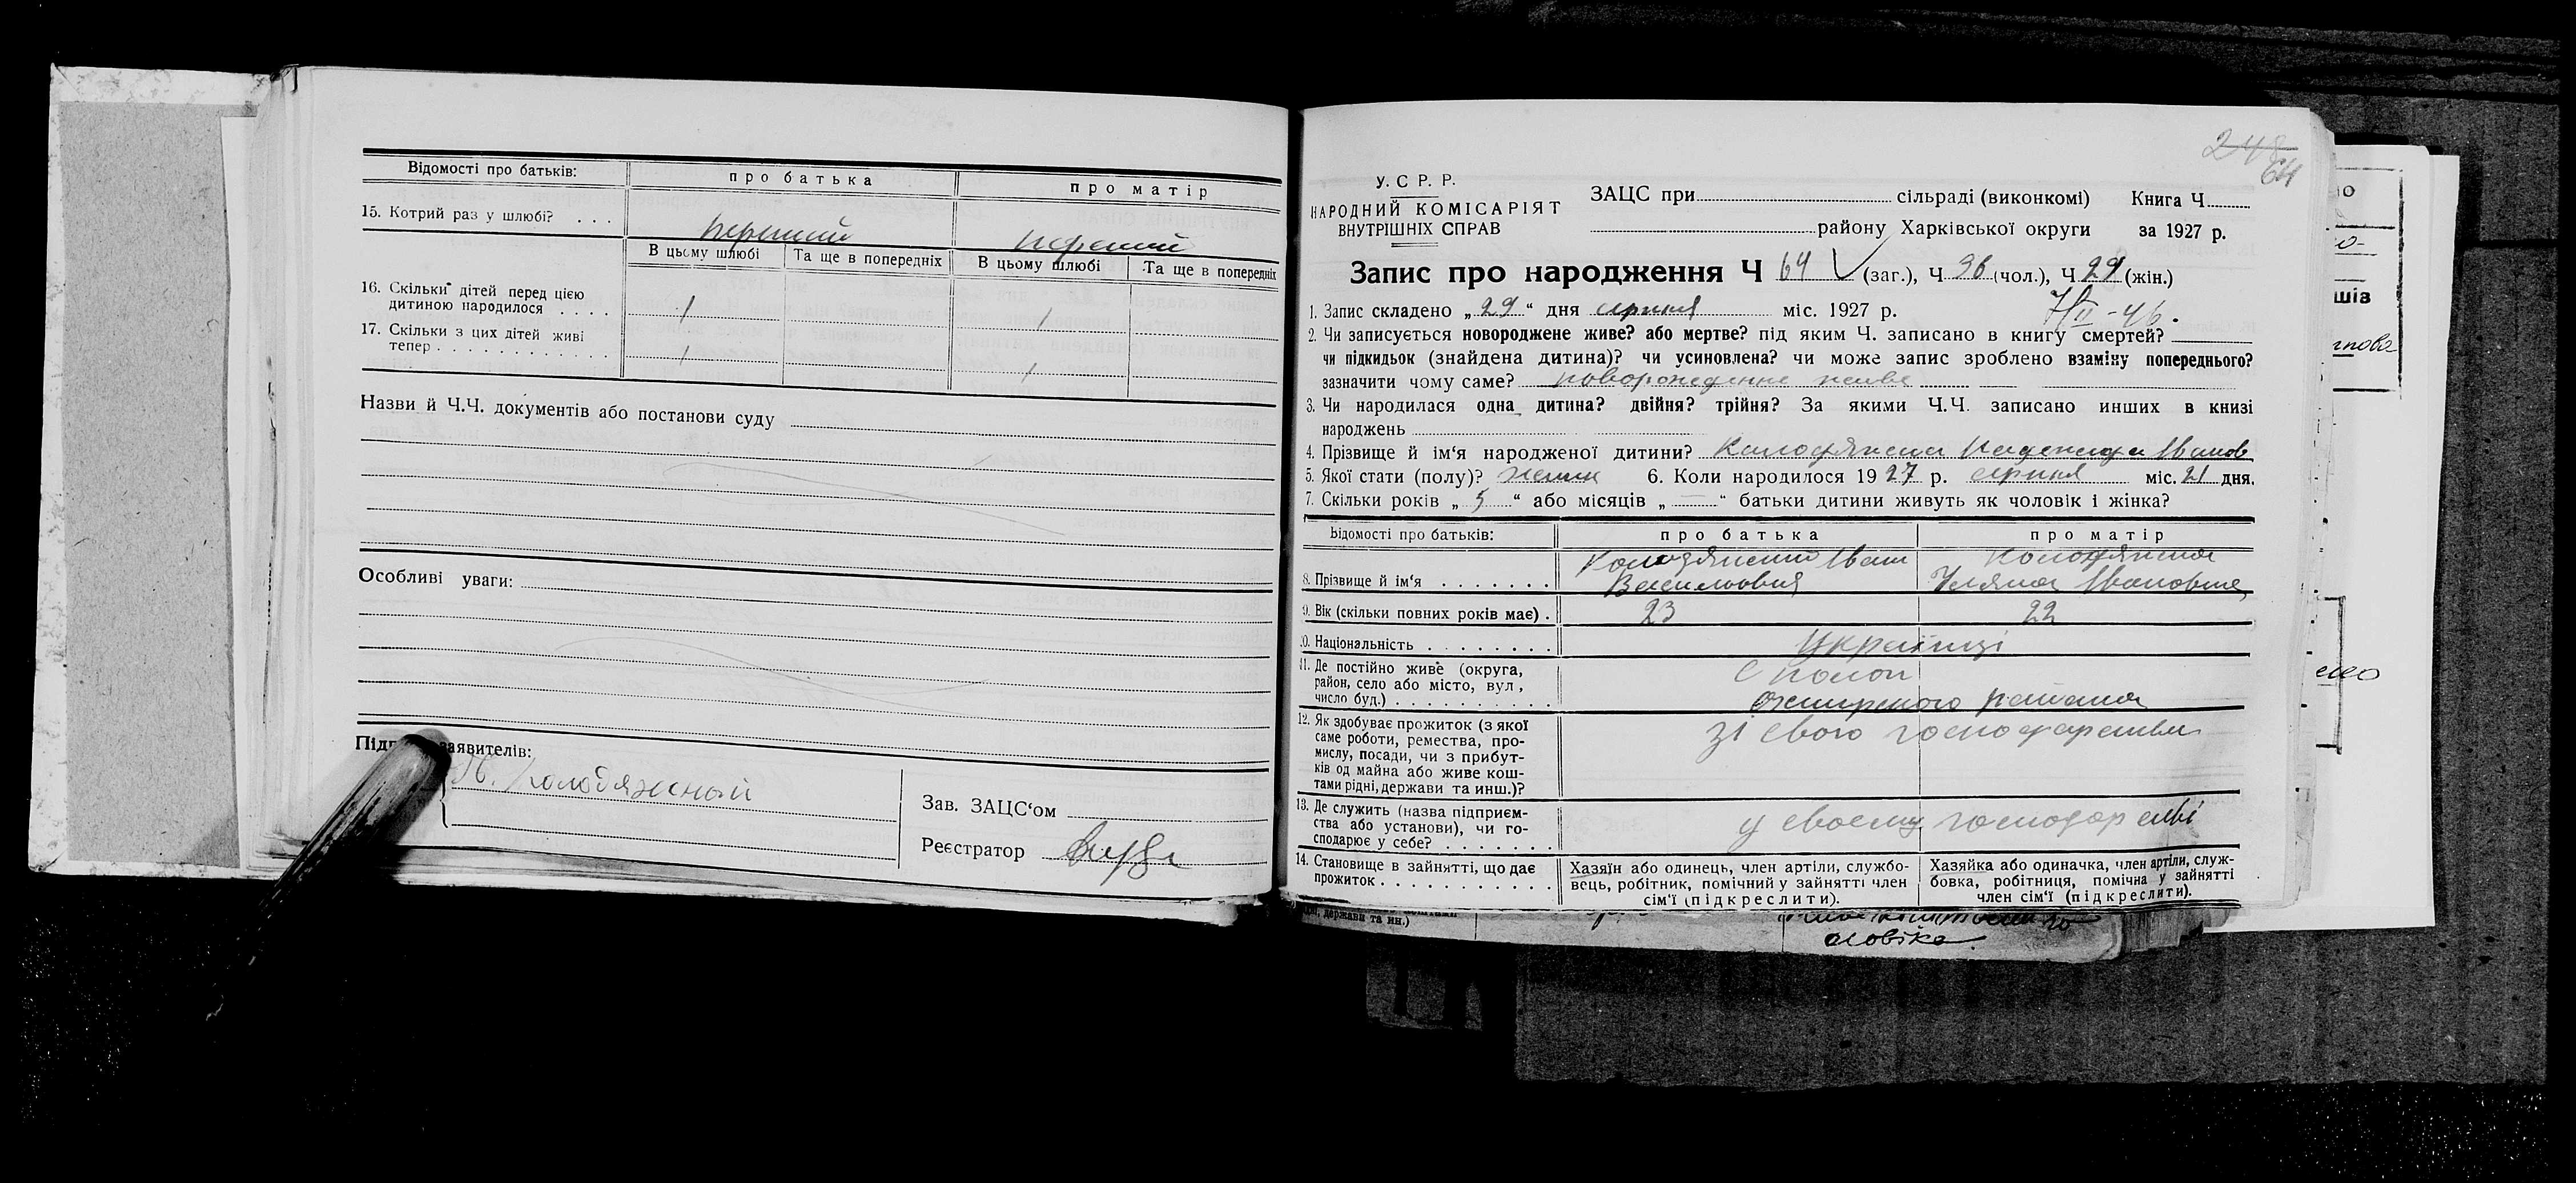 Відомості про батьків: про батька про матір
15. Котрий раз у шлюбі? . . . перший перший
В цьому шлюбі Та ще в попередніх В цьому шлюбі Та ще в попередніх
16. Скільки дітей перед цією
дитиною народилося . . . . 1 1
17. Скільки з цих дітей живі
тепер . . . . . . . . . . . . . 1 1
Назви й Ч.Ч. документів або постанови суду
Особливі уваги:
заявителів:
Колодяжный
Зав. ЗАЦС‘ом
Реєстратор
248
64
У. С Р. Р.
НАРОДНИЙ КОМІСАРІЯТ
ВНУТРІШНІХ СПРАВ
ЗАЦС при сільраді (виконкомі) Книга Ч.
району Харківської округи за 1927 р.
Запис про народження Ч 64 (заг.), Ч 36 (чол.), Ч 29 (жін.)
1. Запис складено „ 29 “ дня серпня міс. 1927 р.
7/II - 46.
2. Чи записується новороджене живе? або мертве? під яким Ч. записано в книгу смертей?
чи підкидьок (знайдена дитина)? чи усиновлена? чи може запис зроблено взаміну попереднього?
зазначити чому саме? новорожденне живе
3. Чи народилася одна дитина? двійня? трійня? За якими Ч.Ч. записано инших в книзі
народжень
4. Прізвище й ім‘я народженої дитини? Надежда Іванов
5. Якої стати (полу)? 6. Коли народилося 1927 р. серпня міс. 21 дня.
7. Скільки років „ 5 “ або місяців „ — “ батьки дитини живуть як чоловік і жінка?
Відомості про батьків: про батька про матір
8. Прізвище й ім‘я . . . . . . . Іван
Васильович Уляна Івановна
9. Вік (скільки повних років має) . 23 22
10. Національність . . . . . . . . Українці
11. Де постійно живе (округа,
район, село або місто, вул,
число буд.) . . . . . . . . . .
12. Як здобуває прожиток (з якої
саме роботи, ремества, про-
мислу, посади, чи з прибут-
ків од майна або живе кош-
тами рідні, держави та инш.)?
зі свого господарства
13. Де служить (назва підприєм-
ства або установи), чи го-
сподарює у себе? . . . . . . .
у своему господарстві
14. Становище в зайнятті, що дає
прожиток . . . . . . . . . . .
Хазяїн або одинець, член артіли, службо-
вець, робітник, помічний у зайнятті член
сім‘ї (підкреслити).
Хазяйка або одиначка, член артіли, служ-
бовка, робітниця, помічна у зайнятті
член сім‘ї (підкреслити).
держави та ин.)